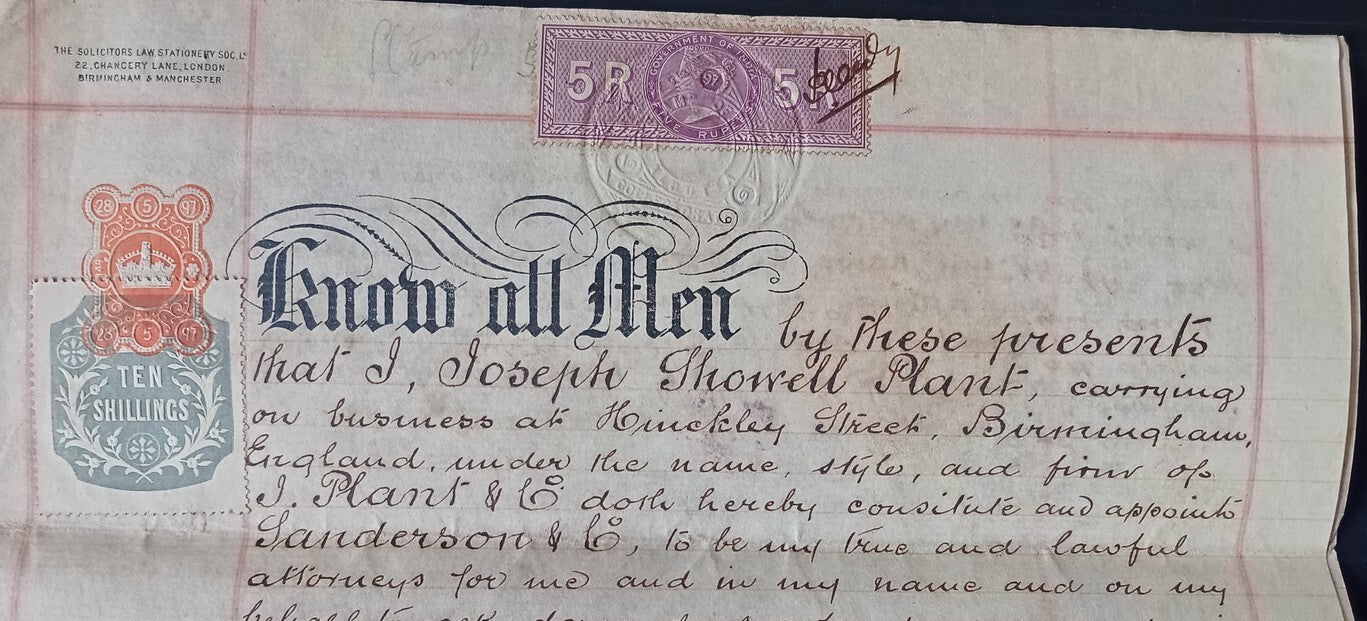 THE SOLICITORS LAW STATIONERY SOC. Lᵈ
22, CHANCERY LANE, LONDON.
BIRMINGHAM & MANCHESTER
Stamp
5 R GOVERNMENT OF INDIA 5 R
FIVE RUPEES
28 5 97
28 5 97
TEN
SHILLINGS
Know all Men by these presents
that I, Joseph Showell Plant, carrying
on business at Hinckley Street, Birmingham,
England, under the name, style, and firm of
J. Plant & Cº doth hereby consitute and appoint
Sanderson & Cº, to be my true and lawful
attorneys for me and in my name and on my
behalf to ask